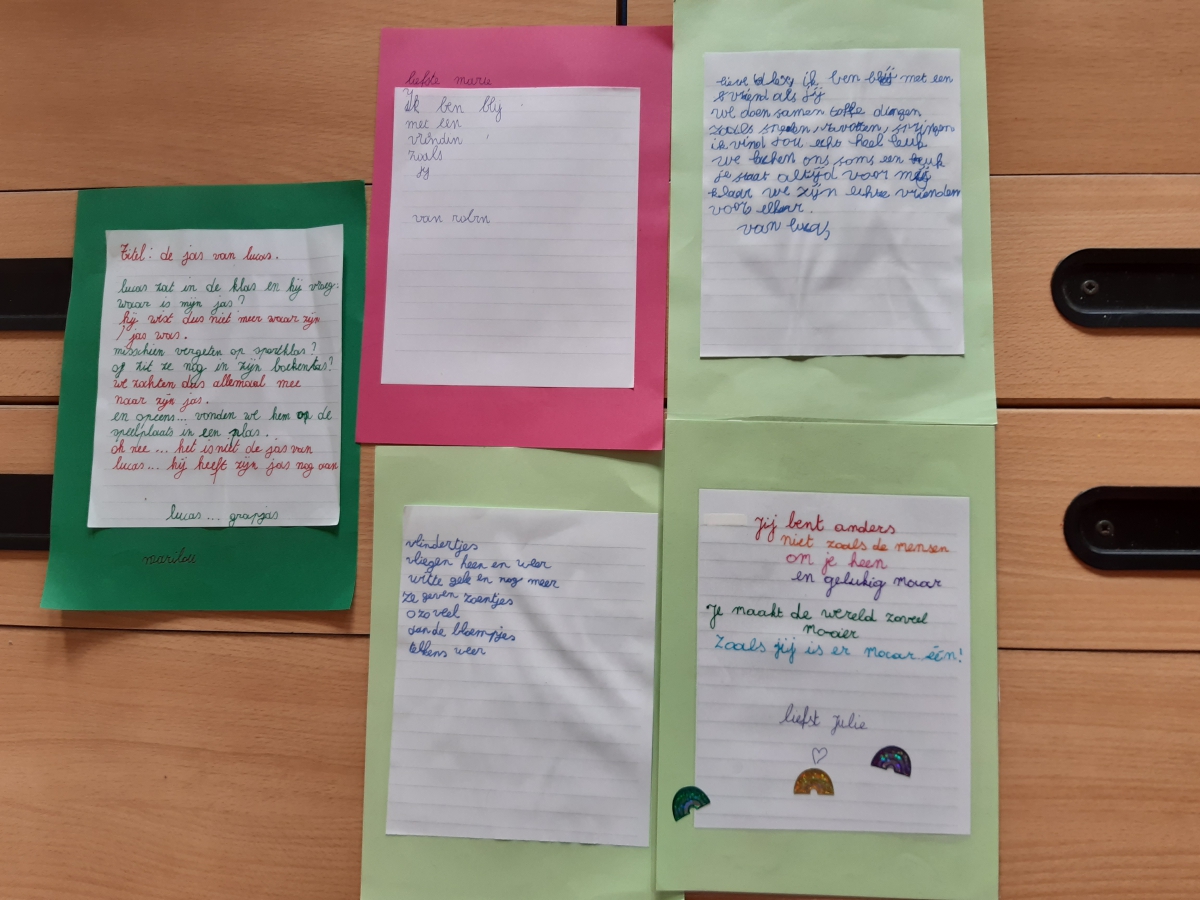 Titel: de jas van lucas.
lucas zat in de klas en hij vroeg:
waar is mijn jas?
hij wist dus niet meer waar zijn
jas was.
misschien vergeten op sportklas?
of zit ze nog in zijn boekentas?
we zochten dus allemaal mee
naar zijn jas.
en opeens... vonden we hem op de
speelplaats in een plas.
oh nee ... het is niet de jas van
lucas... hij heeft zijn jas nog aan
lucas ... grapjas
marilou
liefste marie
Ik ben blij
met een
vrienden
zoals
jij
van robin
lieve ik ben blij met een
vriend als jij
we doen samen toffe dingen
zoals ravotten, springen
ik vind jou echt heel leuk
we soms een
je staat altijd voor mij
klaar we zijn echte vrienden
voor elkaar.
van lucas
vlindertjes
vliegen heen en weer
witte gele en nog meer
ze geven zoentjes
ozoveel
aan de bloempjes
telkens weer
Jij bent anders
niet zoals de mensen
om je heen
en gelukig maar
Je maakt de wereld zoveel
mooier
Zoals jij is er maar één!
liefst Julie